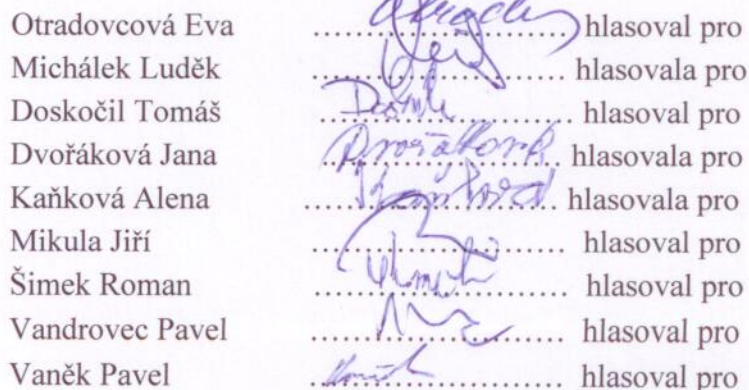 Otradovcová Eva ........................... hlasoval pro
Michálek Luděk ........................... hlasovala pro
Doskočil Tomáš ........................... hlasoval pro
Dvořáková Jana Dvořáková hlasovala pro
Kaňková Alena Kaňková hlasovala pro
Mikula Jiří ........................... hlasoval pro
Šimek Roman ........................... hlasoval pro
Vandrovec Pavel ........................... hlasoval pro
Vaněk Pavel ........................... hlasoval pro